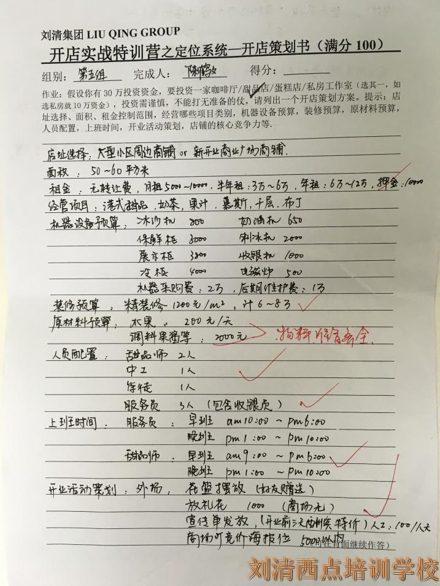 刘清集团 LIU QING GROUP
开店实战特训营之定位系统—开店策划书（满分 100）
组别：第五组 完成人： 得分：
作业：假设你有 30 万投资资金，要投资一家咖啡厅/甜品店/蛋糕店/私房工作室（选其一，如
选私房就 10 万资金），投资需谨慎，不能打无准备的仗，请列出一个开店策划方案，提示：店
址选择、面积、租金控制范围，经营哪些项目类别，机器设备预算，装修预算，原材料预算，
人员配置，上班时间，开业活动策划，店铺的核心竞争力等.
店址选择：大型小区周边商铺 or 新开业商业广场商铺.
面积：50~60平方米
租金：无转让费，月租5000~10000，半年租：3万~6万，年租：6万~12万，押金：10000
经营项目：港式甜品、奶茶、果汁、慕斯、千层、布丁
机器设备预算：冰沙机 800 切油机 650
保鲜柜 3000 制冰机 2000
展示柜 3200 收银机 1000
冷柜 4000 电磁炉 500
机器采购费：2万，后期维护费：1万
装修预算：精装修1200元/m²，计6~8万
原材料预算：水果，200元/天
调料果酱等，2000元 物料信息齐全
人员配置：甜品师 2人
中工 1人
学徒 1人
服务员 3人（包含收银员）
上班时间：服务员：早班 am10:00~pm6:00
晚班 pm1:00~pm10:00
甜品师：早班 am9:00~pm6:00
晚班 pm1:00~pm10:00
开业活动策划：外场，花篮摆放（好友赠送）
放礼花 1000（商场元）
宣传单发放，（开业前三天特价）人工：100/人天
商场可竞价海报位 5000以内 续作答）
刘清西点培训学校